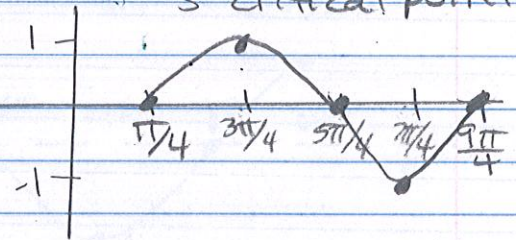 5 critical point
1
π/4 3π/4 5π/4 7π/4 9π/4
-1